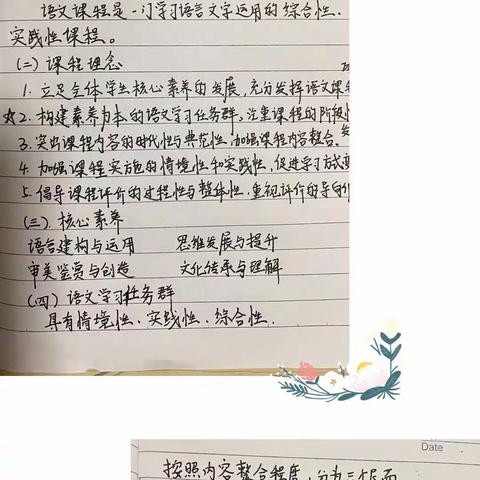 语文课程是一门学习语言文字运用的综合性、
实践性课程。
(二)课程理念
1. 立足全体学生核心素养的发展,充分发挥语文课
☆2. 构建素养为本的语文学习任务群,注重课程的阶段
3. 突出课程内容的时代性与典范性,加强课程内容整合,
4. 加强课程实施的情境性和实践性,促进学习方式
5. 倡导课程评价的过程性与整体性,重视评价的导向
(三)核心素养
语言建构与运用 思维发展与提升
审美鉴赏与创造 文化传承与理解
(四)语文学习任务群
具有情境性、实践性、综合性.
Date
按照内容整合程度,分为三个层面